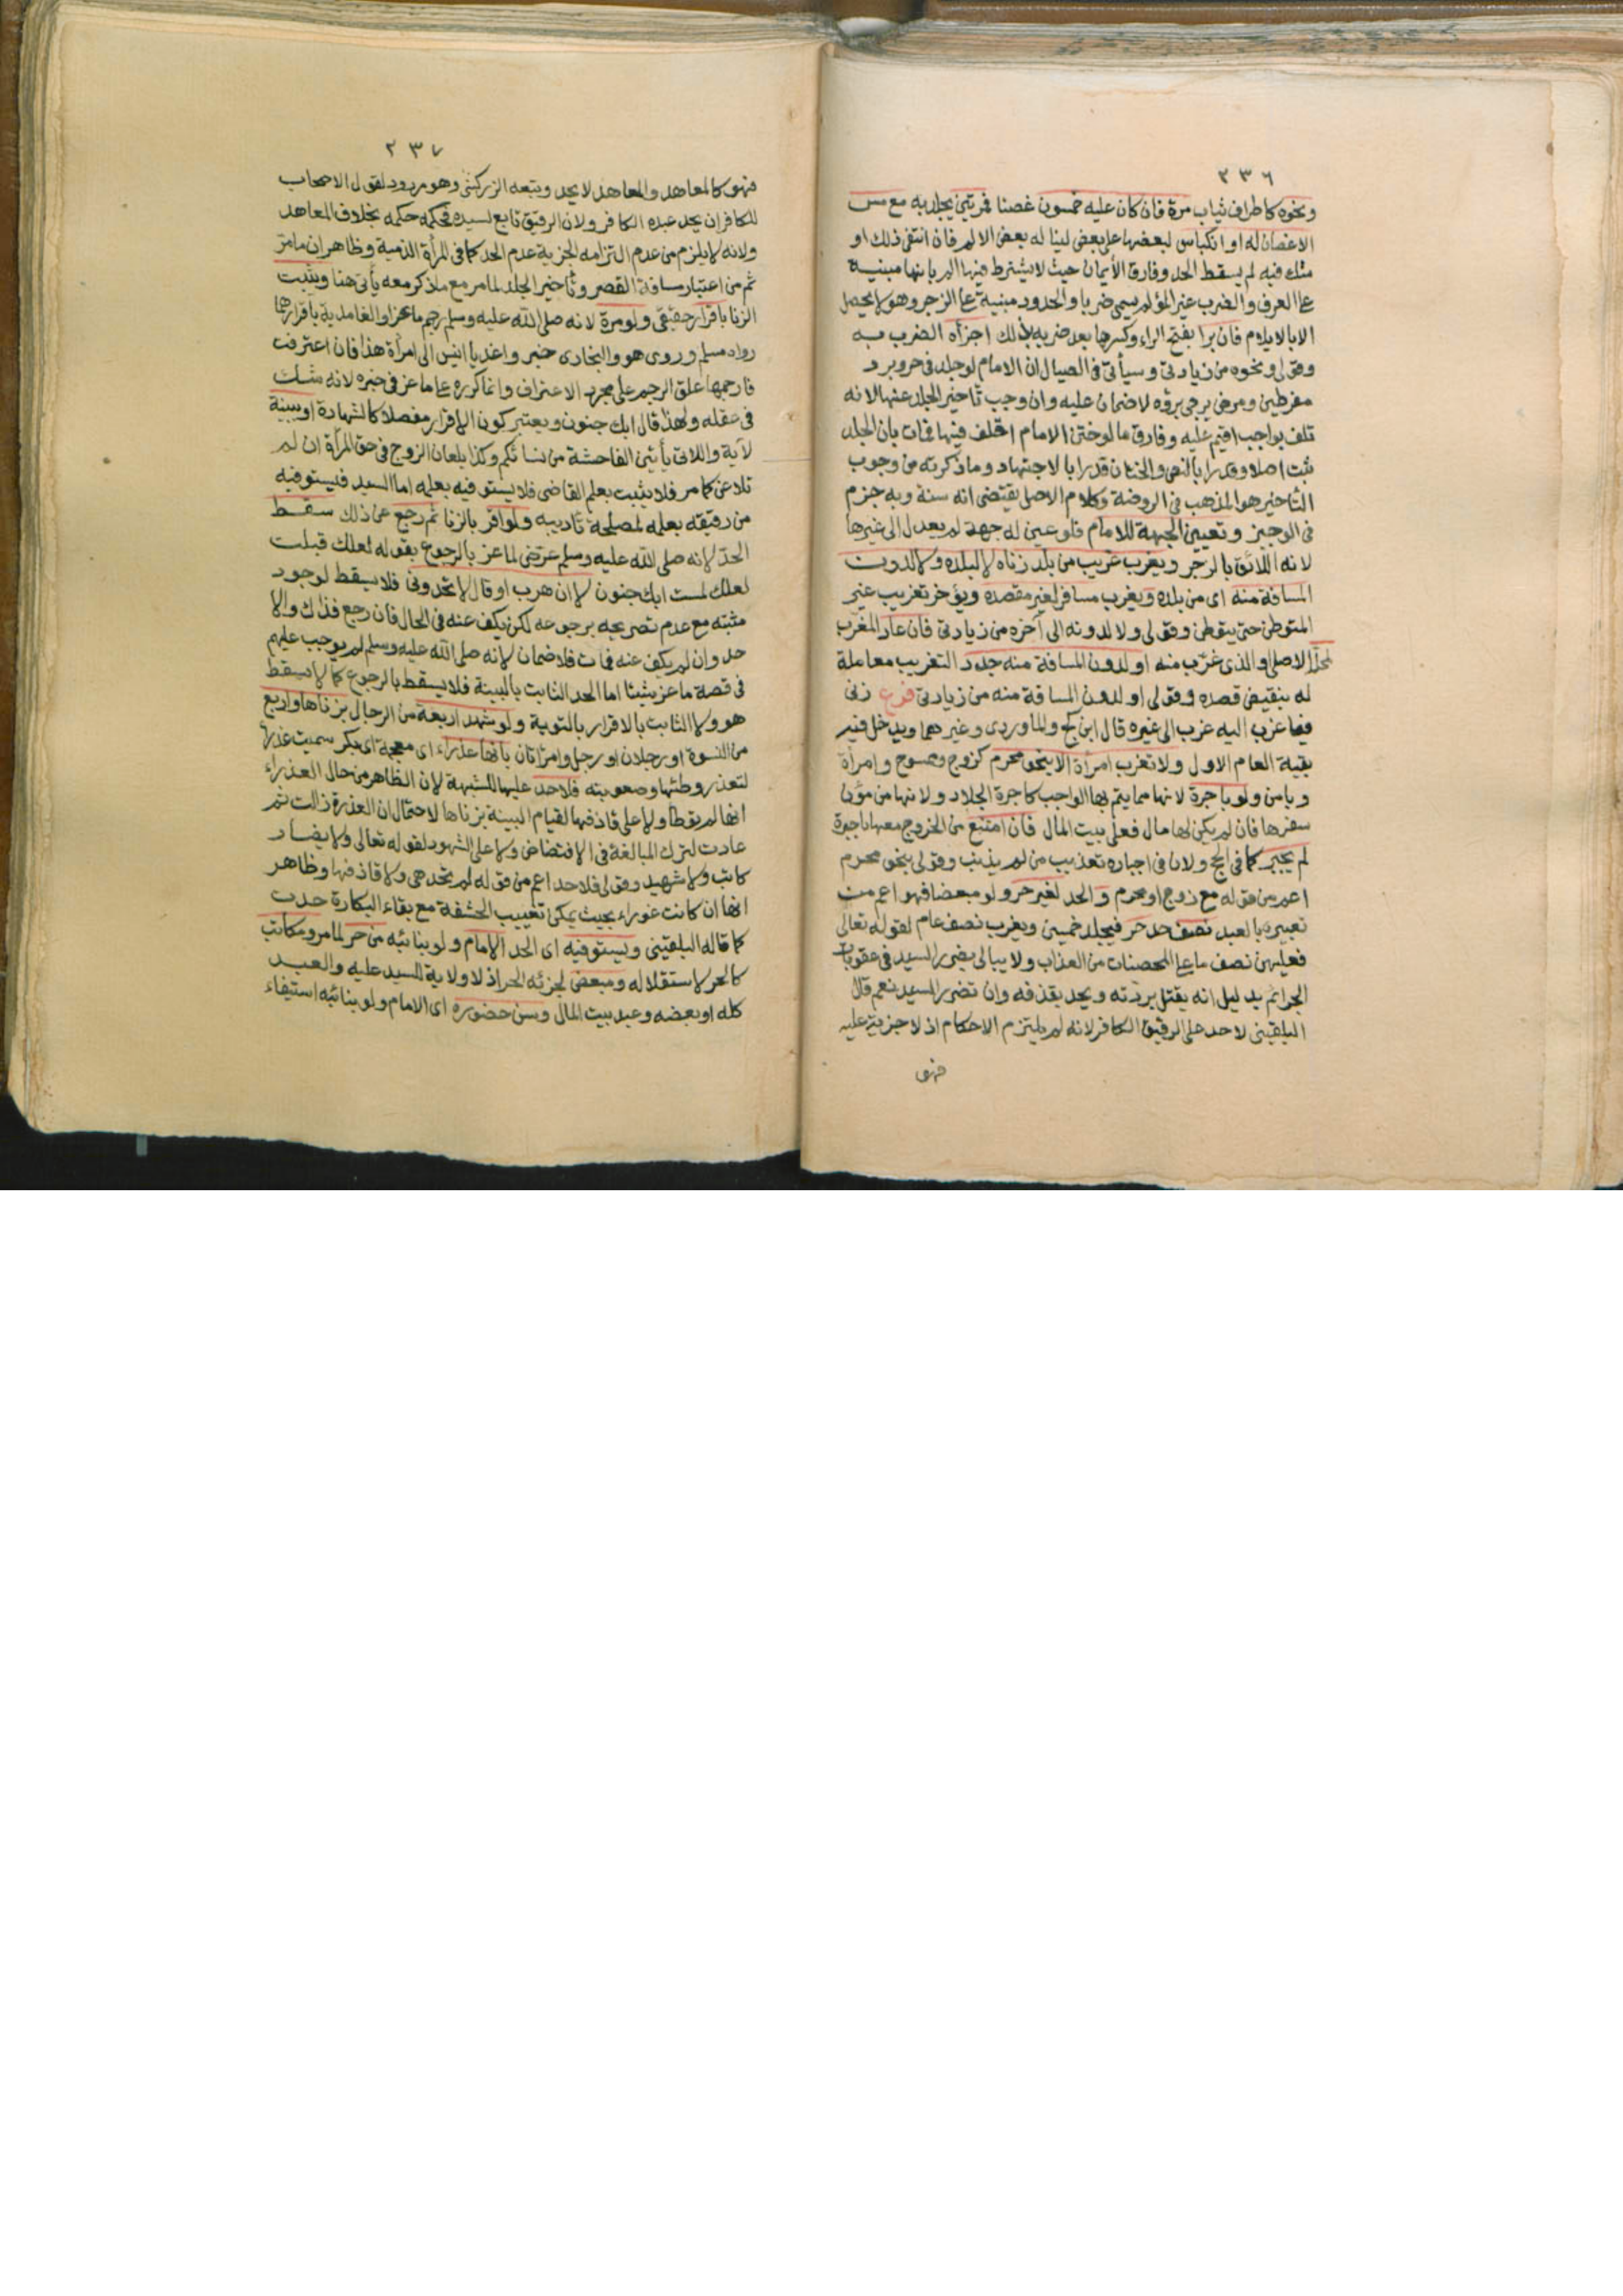 ٢٣٦
ونحوه كاطراف ثياب مرة فان كان عليه خمسون غصنا فمرتين يجلد به مع مس
الاغصان له او انكباس لبعضها على بعض لينا له بعض الالم فان انتفى ذلك او
شك فيه لم يسقط الحد وفارق الأيمان حيث لا يشترط فيها الم بانها مبنية
على العرف والضرب غير المؤلم يسمى ضربا والحدود مبنية على الزجر وهو لا يحصل
الا بالايلام فان برا بفتح الراء وكسرها بعد ضربه بذلك اجزأه الضرب به
وقولي ونحوه من زيادتي وسيأتي في الصيال ان الامام لو جلد في حر وبرد
مفرطين ومرض يرجى برؤه لا ضمان عليه وان وجب تاخير الجلد عنها لانه
تلف بواجب اقيم عليه وفارق ما لو ختن الامام اقلف فيها فمات بان الجلد
ثبت اصلا وقدرا بالنص والختان قدرا بالاجتهاد وما ذكرته من وجوب
التاخير هو المذهب في الروضة وكلام الاصل يقتضى انه سنة وبه جزم
في الوجيز وتعيين الجهة للامام فلو عين له جهة لم يعدل الى غيرها
لانه اللائق بالزجر ويغرب غريب من بلد زناه لا لبلده ولا لدون
المسافة منه اى من بلده ويغرب مسافر لغير مقصده ويؤخر تغريب غير
المتوطن حتى يتوطن وقولي ولا لدونه الى آخره من زيادتي فان عاد المغرب
لمحله الاصلي او الذى غرب منه او لدون المسافة منه جدد التغريب معاملة
له بنقيض قصده وقولي او لدون المسافة منه من زيادتي فرع زنى
فيما غرب اليه غرب الى غيره قال ابن كج والماوردى وغيرهما ويدخل فيه
بقية العام الاول ولا تغرب امرأة الا بنحو محرم كزوج وممسوح وامرأة
وبامن ولو باجرة لانها مما يتم بها الواجب كاجرة الجلاد ولانها من مؤن
سفرها فان لم يكن لها مال فعلى بيت المال فان امتنع من الخروج معها باجرة
لم يجبر كما في الحج ولان في اجباره تعذيب من لم يذنب وقولي بنحو محرم
اعم من قوله مع زوج او محرم و الحد لغير حر ولو مبعضا فهو اعم من
تعبيره بالعبد نصف حد حر فيجلد خمسين ويغرب نصف عام لقوله تعالى
فعليهن نصف ما على المحصنات من العذاب ولا يبالى بضرر السيد في عقوبات
الجرائم بدليل انه يقتل بردته ويحد بقذفه وان تضرر السيد نعم قال
البلقيني لا حد على الرقيق الكافر لانه لم يلتزم الاحكام اذ لا جزية عليه
فهو
٢٣٧
فهو كالمعاهد والمعاهد لا يحد وتبعه الزركشي وهو مردود لقول الاصحاب
للكافر ان يحد عبده الكافر ولان الرقيق تابع لسيده فحكمه حكمه بخلاف المعاهد
ولانه لا يلزم من عدم التزامه الجزية عدم الحد كما في المرأة الذمية وظاهر ان ما مر
ثم من اعتبار مسافة القصر وتأخير الجلد لما مر مع ما ذكر معه يأتي هنا ويثبت
الزنا باقرار حقيقى ولو مرة لانه صلى الله عليه وسلم رجم ماعزا والغامدية باقرارهما
رواه مسلم وروى هو والبخارى خبر واغد يا انيس الى امرأة هذا فان اعترفت
فارجمها علق الرجم على مجرد الاعتراف وانما كرره على ماعز في خبره لانه شك
في عقله ولهذا قال ابك جنون ويعتبر كون الاقرار مفصلا كالشهادة او ببينة
لآية واللاتي يأتين الفاحشة من نسائكم وكذا بلعان الزوج في حق المرأة ان لم
تلاعن كما مر فلا يثبت بعلم القاضى فلا يستوفيه بعلمه اما السيد فيستوفيه
من رقيقه بعلمه لمصلحة تاديبه ولو اقر بالزنا ثم رجع عن ذلك سقط
الحد لانه صلى الله عليه وسلم عرّض لماعز بالرجوع بقوله لعلك قبلت
لعلك لمست ابك جنون لا ان هرب او قال لا تحدوني فلا يسقط لوجود
مثبته مع عدم تصريحه برجوعه لكن يكف عنه في الحال فان رجع فذاك والا
حد وان لم يكف عنه فمات فلا ضمان لانه صلى الله عليه وسلم لم يوجب عليهم
في قصة ماعز شيئا اما الحد الثابت بالبينة فلا يسقط بالرجوع كما لا يسقط
هو ولا الثابت بالاقرار بالتوبة ولو شهد اربعة من الرجال بزناها واربع
من النسوة او رجلان او رجل وامرأتان بانها عذراء اى معجمة اى بكر سميت عذراء
لتعذر وطئها وصعوبته فلا حد عليها للشبهة لان الظاهر من حال العذراء
انها لم توطأ ولا على قاذفها لقيام البينة بزناها لاحتمال ان العذرة زالت ثم
عادت لترك المبالغة في الافتضاض ولا على الشهود لقوله تعالى ولا يضار
كاتب ولا شهيد وقولي فلا حد اعم من قوله لم تحد هى ولا قاذفها وظاهر
انها ان كانت غوراء بحيث يمكن تغييب الحشفة مع بقاء البكارة حدت
كما قاله البلقيني ويستوفيه اى الحد الامام ولو بنائبه من حر لما مر ومكاتب
كالحر لاستقلاله ومبعض لجزئه الحر اذ لا ولاية للسيد عليه والعبد
كله او بعضه وعبد بيت المال وسن حضوره اى الامام ولو بنائبه استيفاء